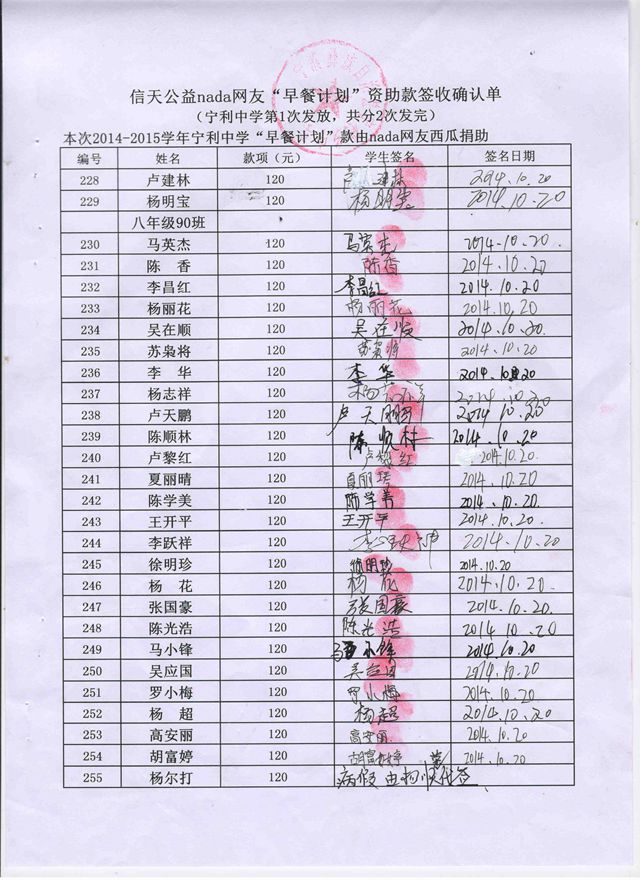 信天公益nada网友“早餐计划”资助款签收确认单
（宁利中学第1次发放，共分2次发完）
本次2014-2015学年宁利中学“早餐计划”款由nada网友西瓜捐助
编号 姓名 款项（元） 学生签名 签名日期
228 卢建林 120 2014.10.20
229 杨明宝 120 杨明宝 2014.10.20
八年级90班
230 马英杰 120 马英杰 2014.10.20
231 陈 香 120 陈香 2014.10.20
232 李昌红 120 李昌红 2014.10.20
233 杨丽花 120 杨丽花 2014.10.20
234 吴在顺 120 吴在顺 2014.10.20
235 苏枭将 120 苏枭将 2014.10.20
236 李 华 120 李华 2014.10.20
237 杨志祥 120 杨志祥 2014.10.20
238 卢天鹏 120 卢天鹏 2014.10.20
239 陈顺林 120 陈顺林 2014.10.20
240 卢黎红 120 卢黎红 2014.10.20
241 夏丽晴 120 夏丽晴 2014.10.20
242 陈学美 120 陈学美 2014.10.20
243 王开平 120 王开平 2014.10.20
244 李跃祥 120 2014.10.20
245 徐明珍 120 徐明珍 2014.10.20
246 杨 花 120 杨花 2014.10.20
247 张国豪 120 张国豪 2014.10.20
248 陈光浩 120 陈光浩 2014.10.20
249 马小锋 120 马小锋 2014.10.20
250 吴应国 120 吴应国 2014.10.20
251 罗小梅 120 罗小梅 2014.10.20
252 杨 超 120 杨超 2014.10.20
253 高安丽 120 高安丽 2014.10.20
254 胡富婷 120 胡富婷 2014.10.20
255 杨尔打 120 病假 由杨顺代签